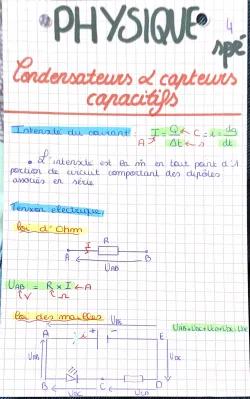 PHYSIQUE
4
spé
Condensateurs & capteurs
capacitifs
Intensité du courant : I = Q/Δt C = i = dq/dt
A
s
L'intensité est la m̂ en tout point d'1
portion de circuit comportant des dipôles
associés en série
Tension électrique
Loi d'Ohm
I R
A B
UAB
UAB = R x I ← A
V Ω
Loi des mailles
UAE
A i + - E
UAB UDE
B C D
UBC UCD